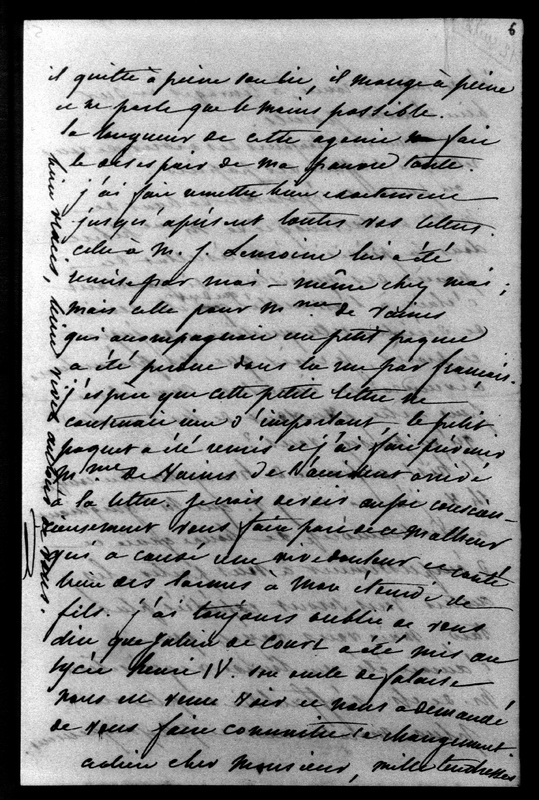 6
il quitte à peine son lit, il mange à peine
et ne parle que le moins possible.
la longueur de cette agonie fait
le désespoir de ma pauvre tante.
j'ai fait remettre bien exactement
jusqu'à présent toutes vos lettres.
celle à M. J. Lemoine lui a été
remise par moi-même chez moi;
mais celle pour Mme de Raines
qui accompagnait un petit paquet
a été perdue dans la rue par françois.
j'espère que cette petite lettre ne
contenait rien d'important. le petit
paquet a été remis et j'ai fait prévenir
Mme de Raines de l'accident arrivé
à la lettre. je vais devoir aussi
vous faire part de ce malheur
qui a causé une vive douleur et coûté
bien des larmes à mon étourdi de
fils. j'ai toujours oublié de vous
dire que Julien de Court a été mis au
lycée Henri IV. son oncle de falaise
nous est venu voir et nous a demandé
de vous faire connaître ce changement
adieu cher Monsieur, mille tendresses
bien vraies, bien vives autour de vous.